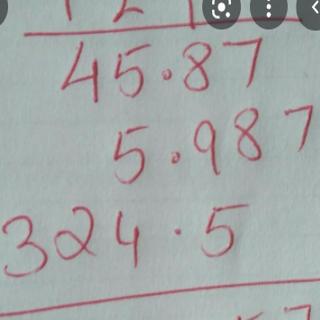 45.87
5.987
324.5